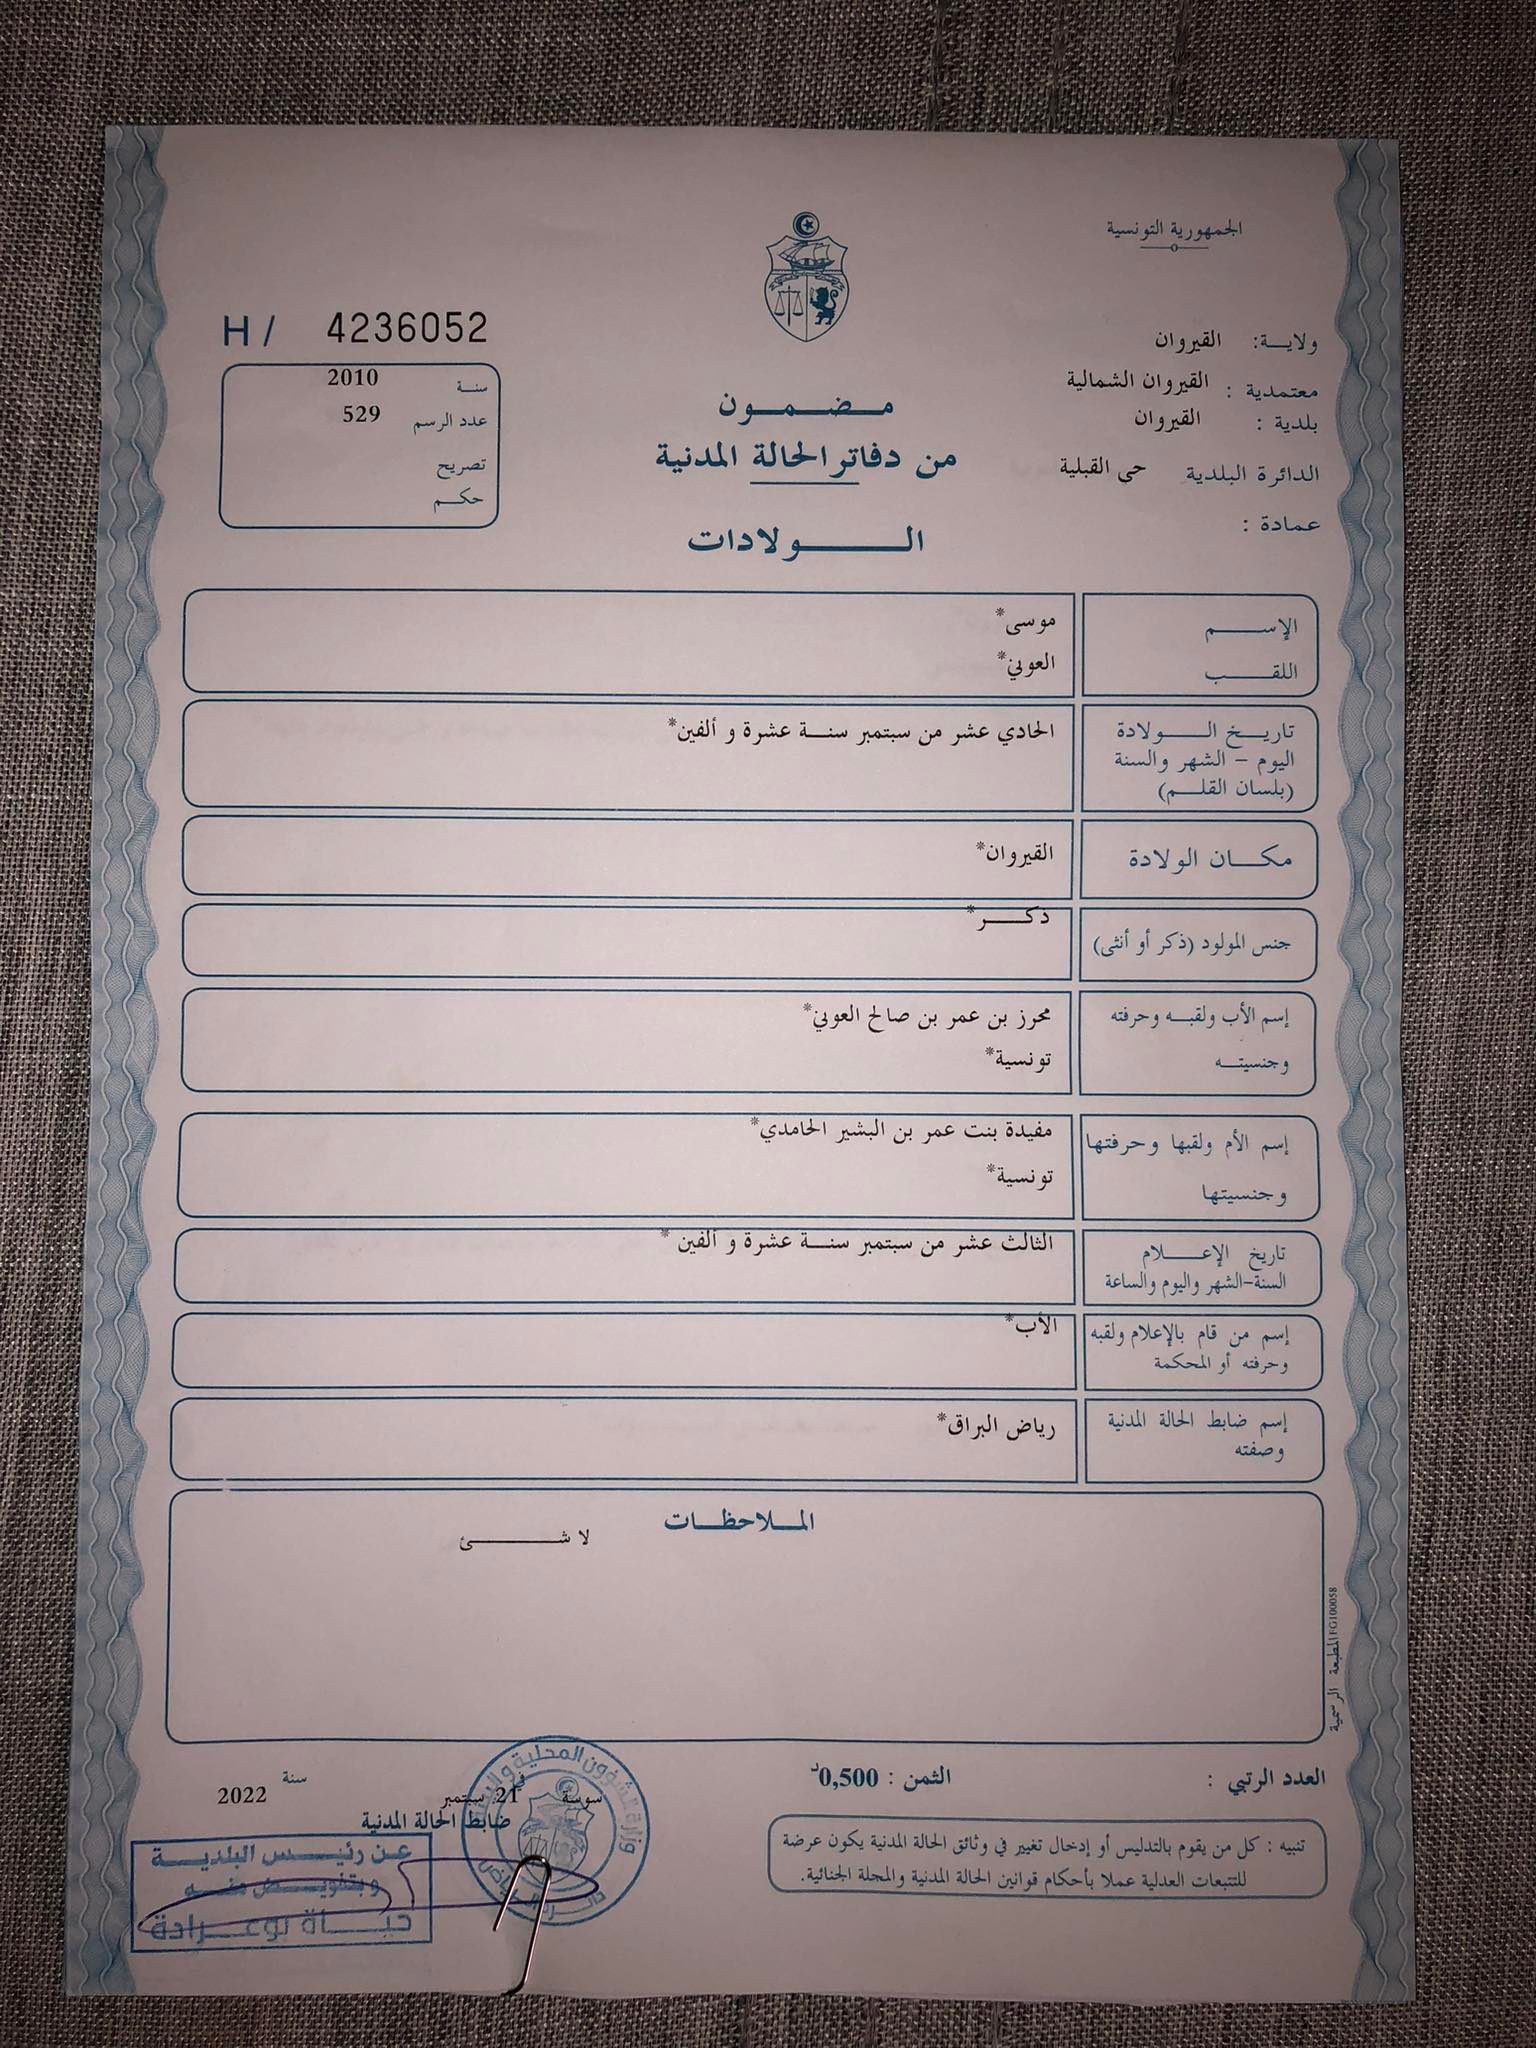 الجمهورية التونسية
ولاية: القيروان
معتمدية : القيروان الشمالية
بلدية : القيروان
الدائرة البلدية حي القبلية
عمادة :
H / 4236052
سنة 2010
عدد الرسم 529
تصريح
حكم
مضمون
من دفاتر الحالة المدنية
الولادات
الإسم موسى*
اللقب العوني*
تاريخ الولادة
اليوم - الشهر والسنة
(بلسان القلم)
الحادي عشر من سبتمبر سنة عشرة و ألفين*
مكان الولادة القيروان*
جنس المولود (ذكر أو أنثى) ذكر*
إسم الأب ولقبه وحرفته
وجنسيته
محرز بن عمر بن صالح العوني*
تونسية*
إسم الأم ولقبها وحرفتها
وجنسيتها
مفيدة بنت عمر بن البشير الحامدي*
تونسية*
تاريخ الإعلام
السنة-الشهر واليوم والساعة
الثالث عشر من سبتمبر سنة عشرة و ألفين *
إسم من قام بالإعلام ولقبه
وحرفته أو المحكمة
الأب*
إسم ضابط الحالة المدنية
وصفته
رياض البراق*
الملاحظات
لا شئ
المطبعة الرسمية FG100058
العدد الرتبي :
الثمن : 0,500د
تنبيه : كل من يقوم بالتدليس أو إدخال تغيير في وثائق الحالة المدنية يكون عرضة
للتتبعات العدلية عملا بأحكام قوانين الحالة المدنية والمجلة الجنائية.
سوسة في 21 سبتمبر سنة 2022
ضابط الحالة المدنية
وزارة الشؤون المحلية والبيئة
عن رئيس البلدية
وبتفويض منه
حياة بوعرادة